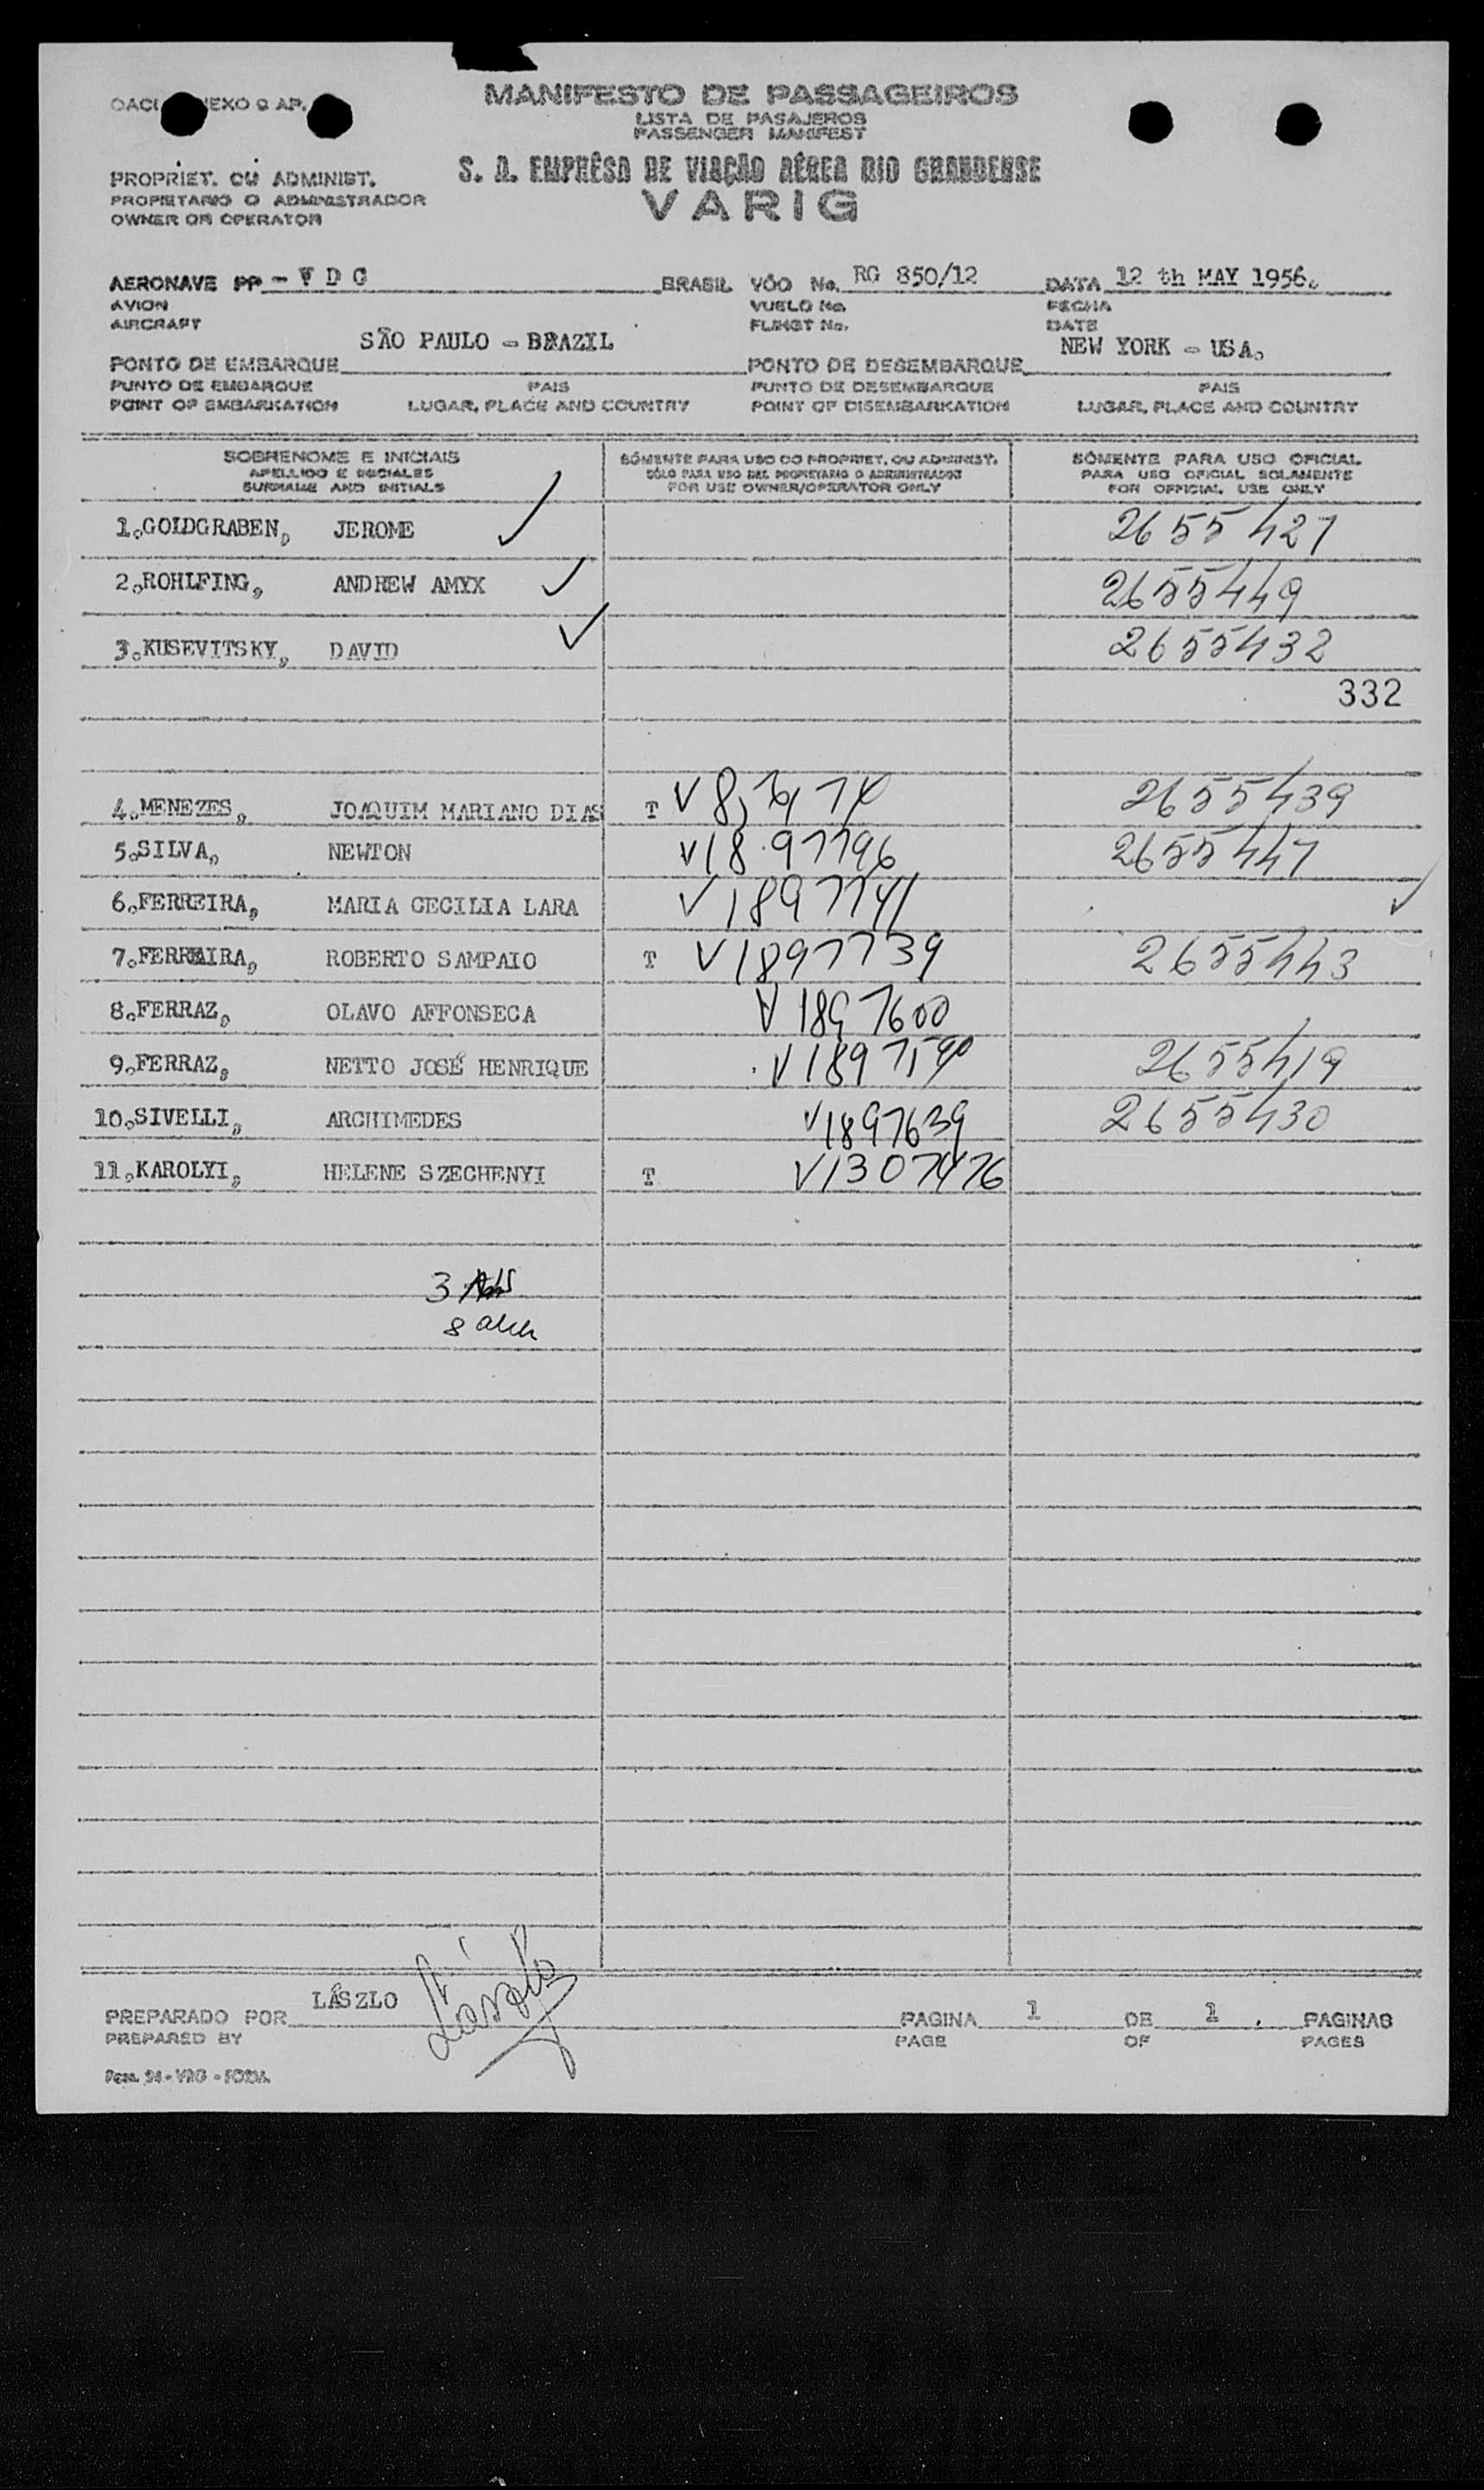 MANIFESTO DE PASSAGEIROS
LISTA DE PASAJEROS
PASSENGER MANIFEST
S. A. EMPRÊSA DE VIAÇÃO AÉREA RIO GRANDENSE
VARIG
PROPRIET. OU ADMINIST.
PROPIETARIO O ADMINISTRADOR
OWNER OR OPERATOR
AERONAVE PP - V D C BRASIL VÔO No. RG 850/12 DATA 12 th MAY 1956.
AVION VUELO No. FECHA
AIRCRAFT FLIHGT No. DATE
SÃO PAULO - BRAZIL NEW YORK - USA.
PONTO DE EMBARQUE PONTO DE DESEMBARQUE
PUNTO DE EMBARQUE PAIS PUNTO DE DESEMBARQUE PAIS
POINT OF EMBARKATION LUGAR, PLACE AND COUNTRY POINT OF DISEMBARKATION LUGAR, PLACE AND COUNTRY
SOBRENOME E INICIAIS SÓMENTE PARA USO DO PROPRIET. OU ADMINIST. SÓMENTE PARA USO OFICIAL
APELLIDO E INICIALES SÓLO PARA USO DEL PROPIETARIO O ADMINISTRADOR PARA USO OFICIAL SOLAMENTE
SURNAME AND INITIALS FOR USE OWNER/OPERATOR ONLY FOR OFFICIAL USE ONLY
1.GOLDGRABEN, JEROME 2655427
2.ROHLFING, ANDREW AMYX 2655449
3.KUSEVITSKY, DAVID 2655432
332
4.MENEZES, JOAQUIM MARIANO DIAS T 2655439
5.SILVA, NEWTON V18.97796 2655447
6.FERREIRA, MARIA CECILIA LARA V1897741
7.FERREIRA, ROBERTO SAMPAIO T V1897739 2655443
8.FERRAZ, OLAVO AFFONSECA V1897600
9.FERRAZ, NETTO JOSÉ HENRIQUE V1897590 2655419
10.SIVELLI, ARCHIMEDES V1897639 2655430
11.KAROLYI, HELENE SZECHENYI T V1307476
3
8
LÁSZLO László
PREPARADO POR PAGINA 1 DE 1 . PAGINAS
PREPARED BY PAGE OF PAGES